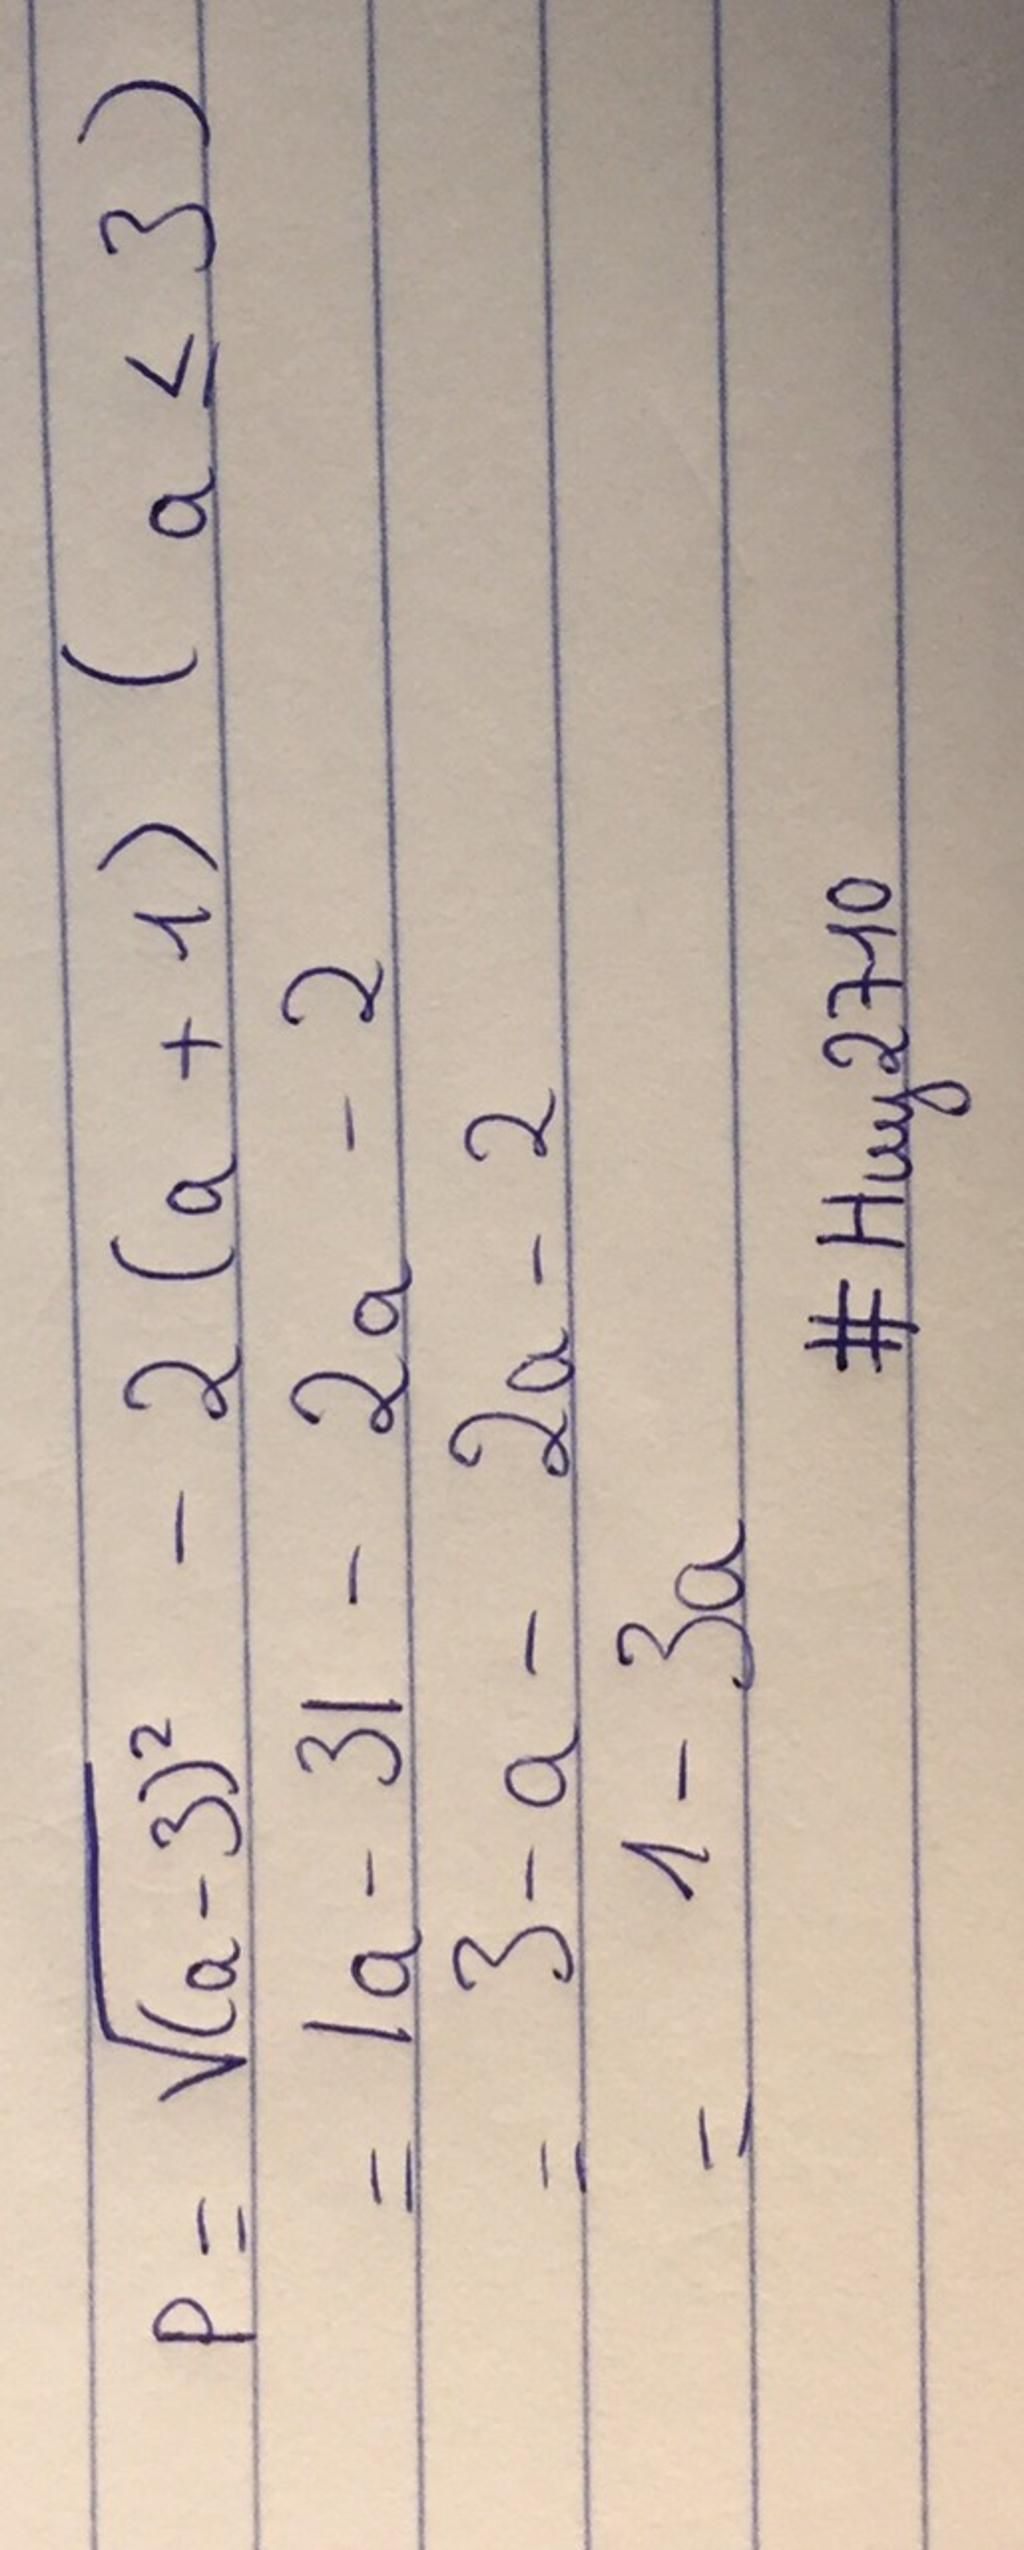 P = √(a-3)² - 2(a+1) (a ≤ 3)
= |a-3| - 2a - 2
= 3-a - 2a - 2
= 1 - 3a
#Huy2710